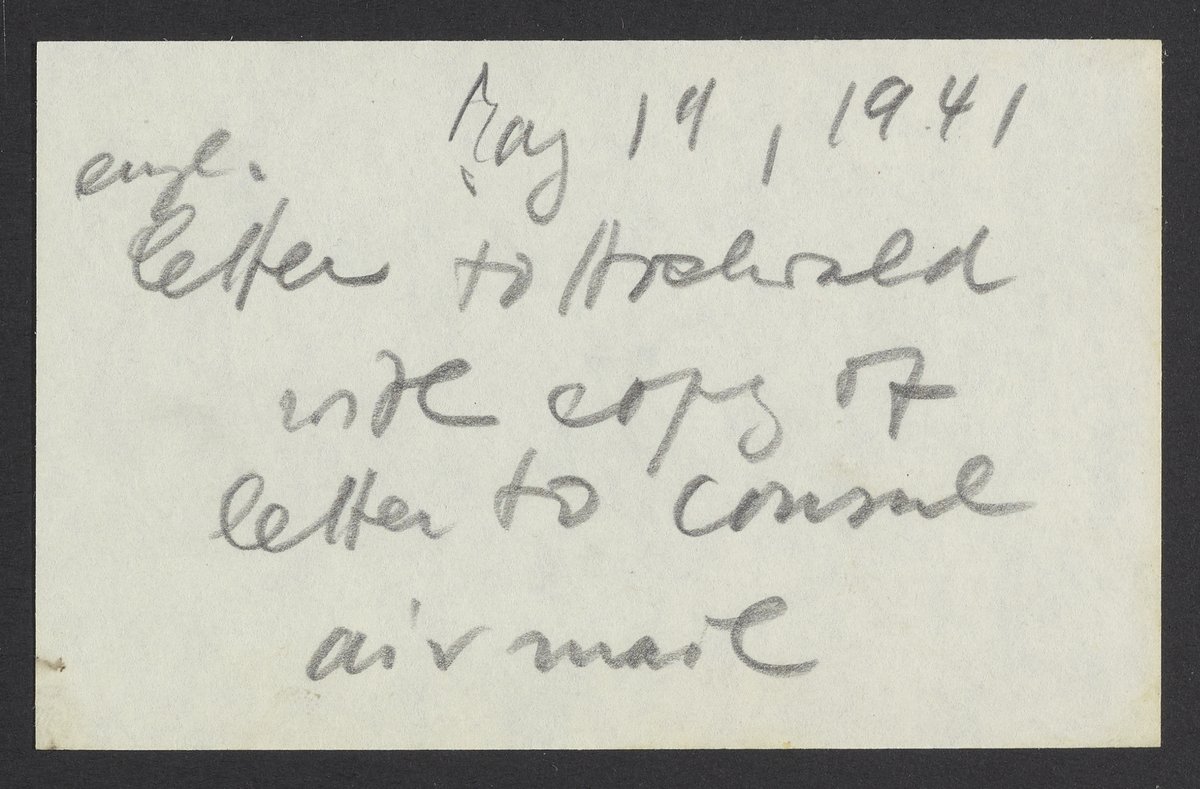 May 14, 1941
engl.
letter to Hochwald
with copy of
letter to consul
air mail